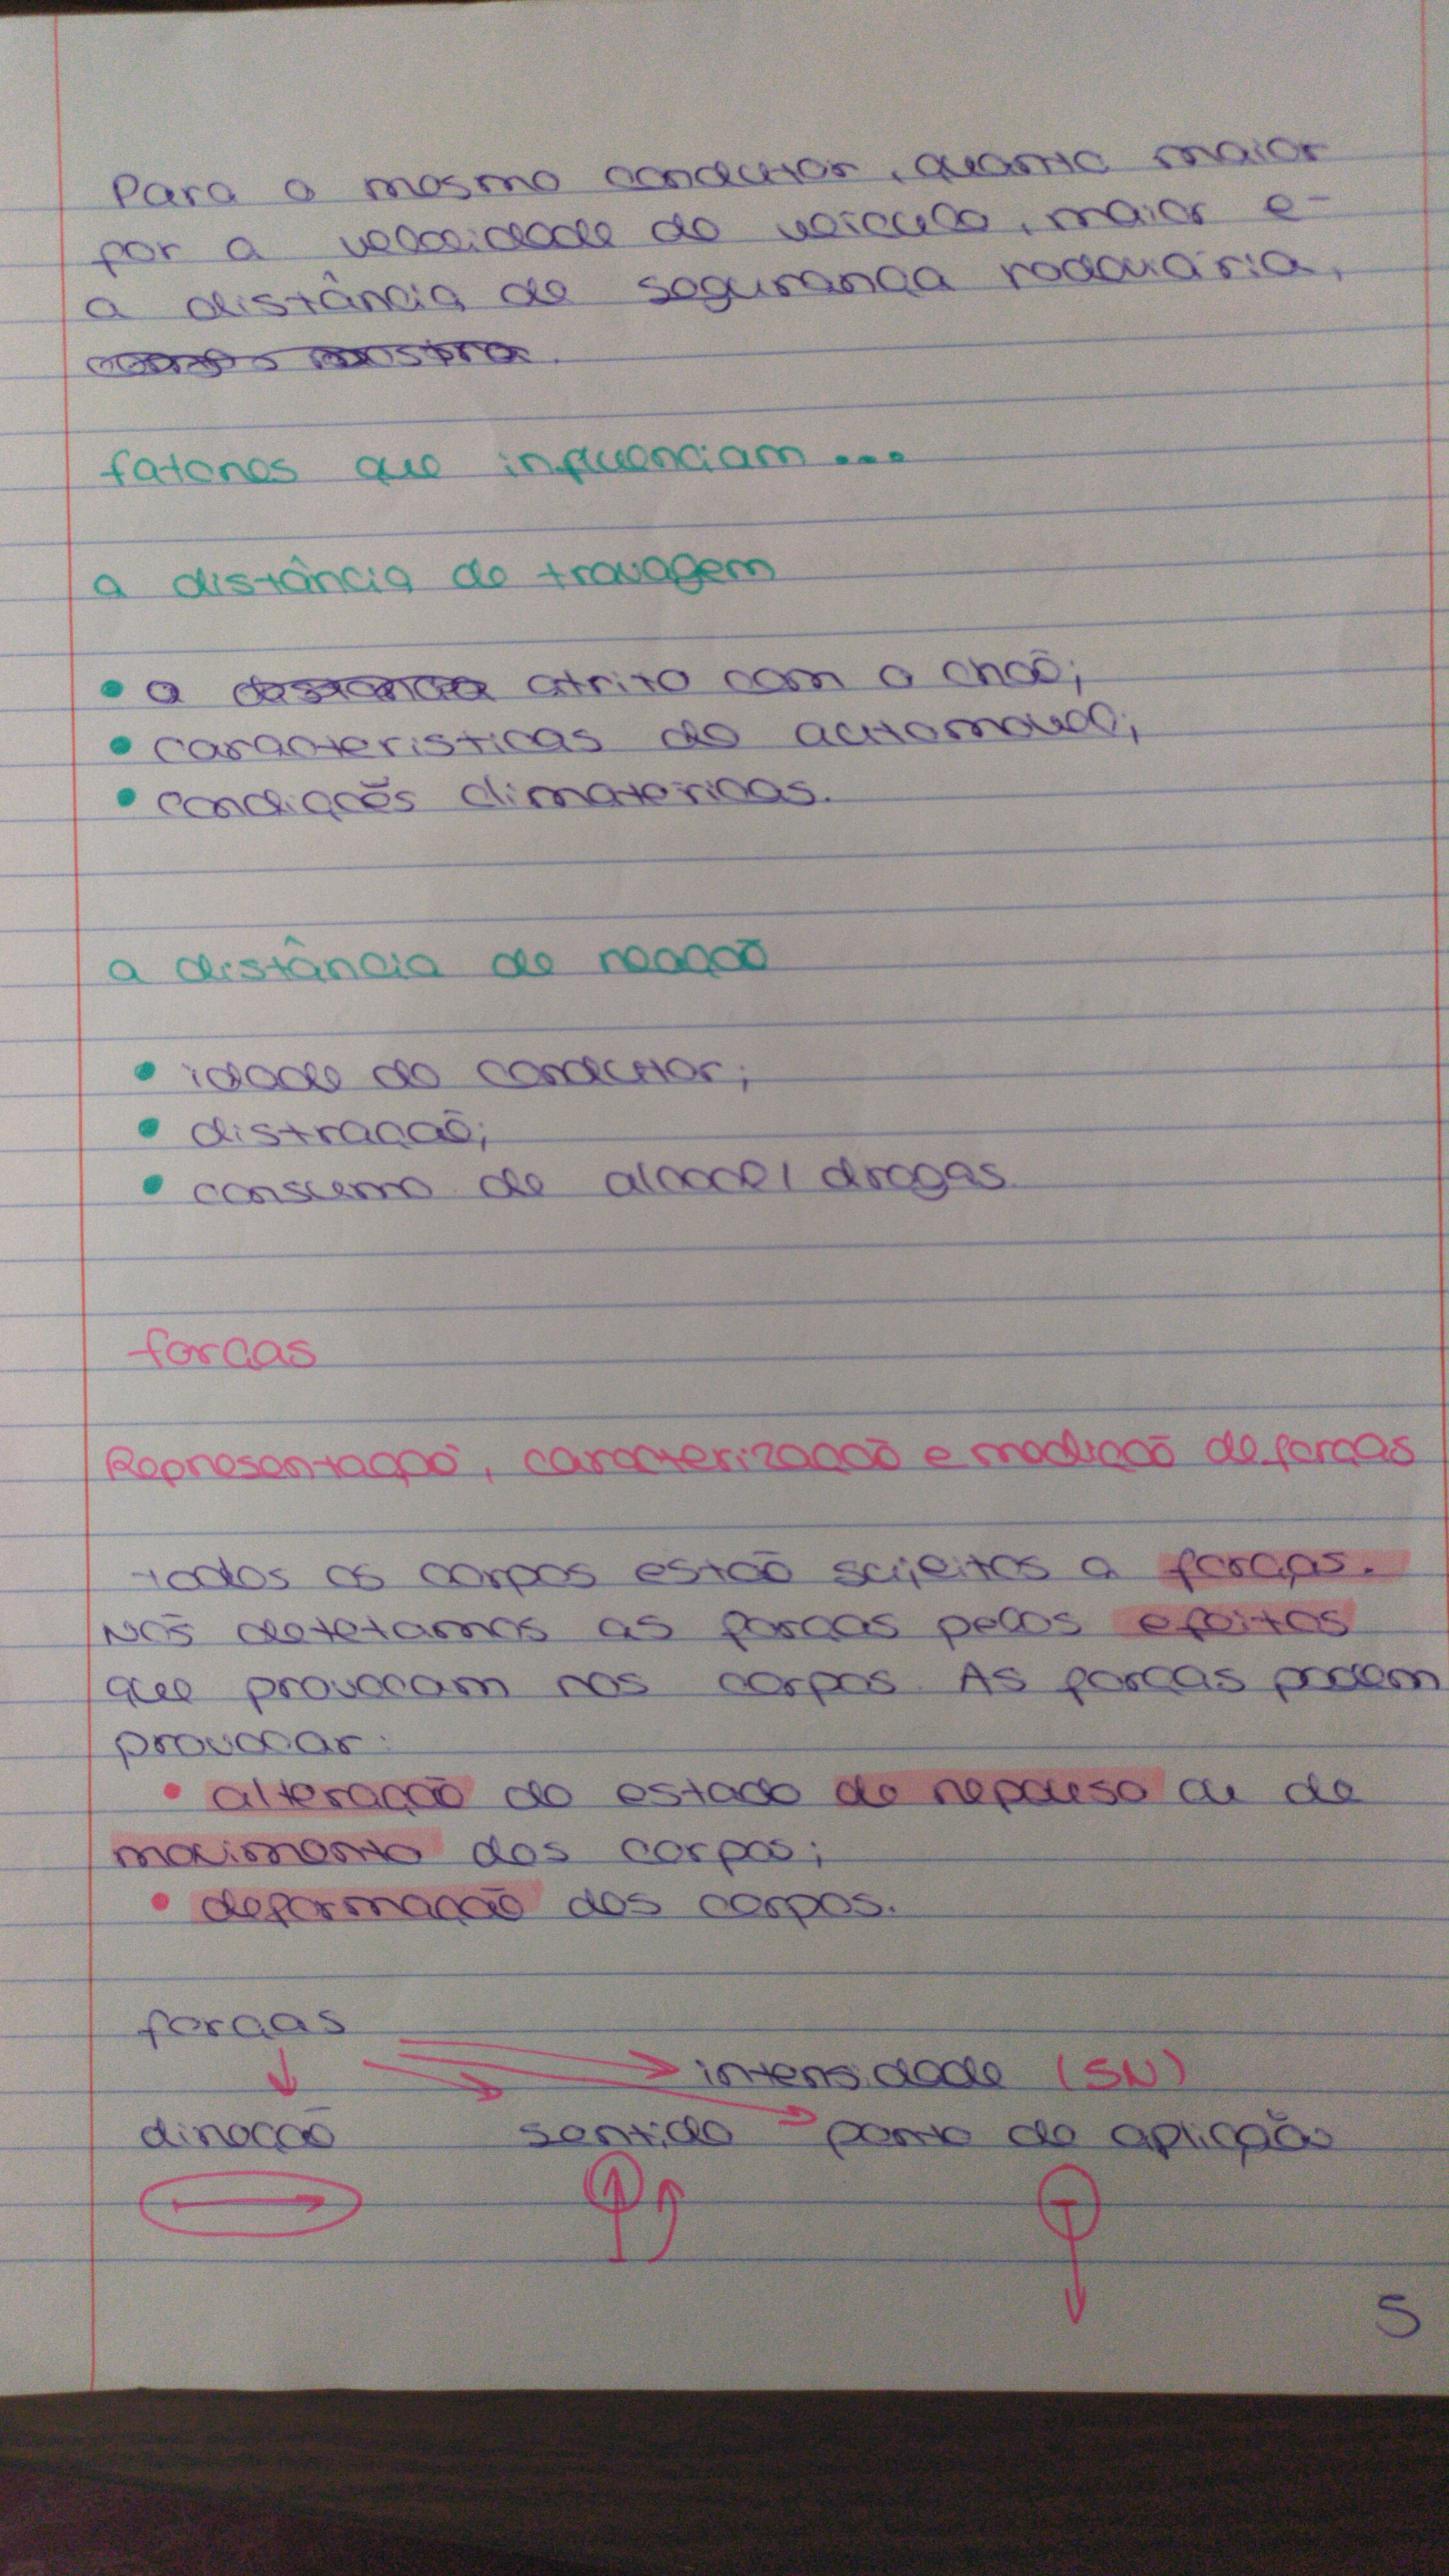 Para o mesmo condutor, quanto maior
for a velocidade do veículo, maior é
a distância de segurança rodoviária,
fatores que influenciam...
a distância de travagem
• o atrito com o chão;
• caracteristicas do automovel;
• condições climatericas.
a distância de reação
• idade do condutor;
• distração;
• consumo de alcool/drogas.
forças
Representação, caracterização e medição de forças
todos os corpos estão sujeitos a forças.
Nós detetamos as forças pelos efeitos
que provocam nos corpos. As forças podem
provocar:
• alteração do estado de repouso ou de
movimento dos corpos;
• deformação dos corpos.
forças
intensidade (5N)
direção sentido ponto de aplicação
5